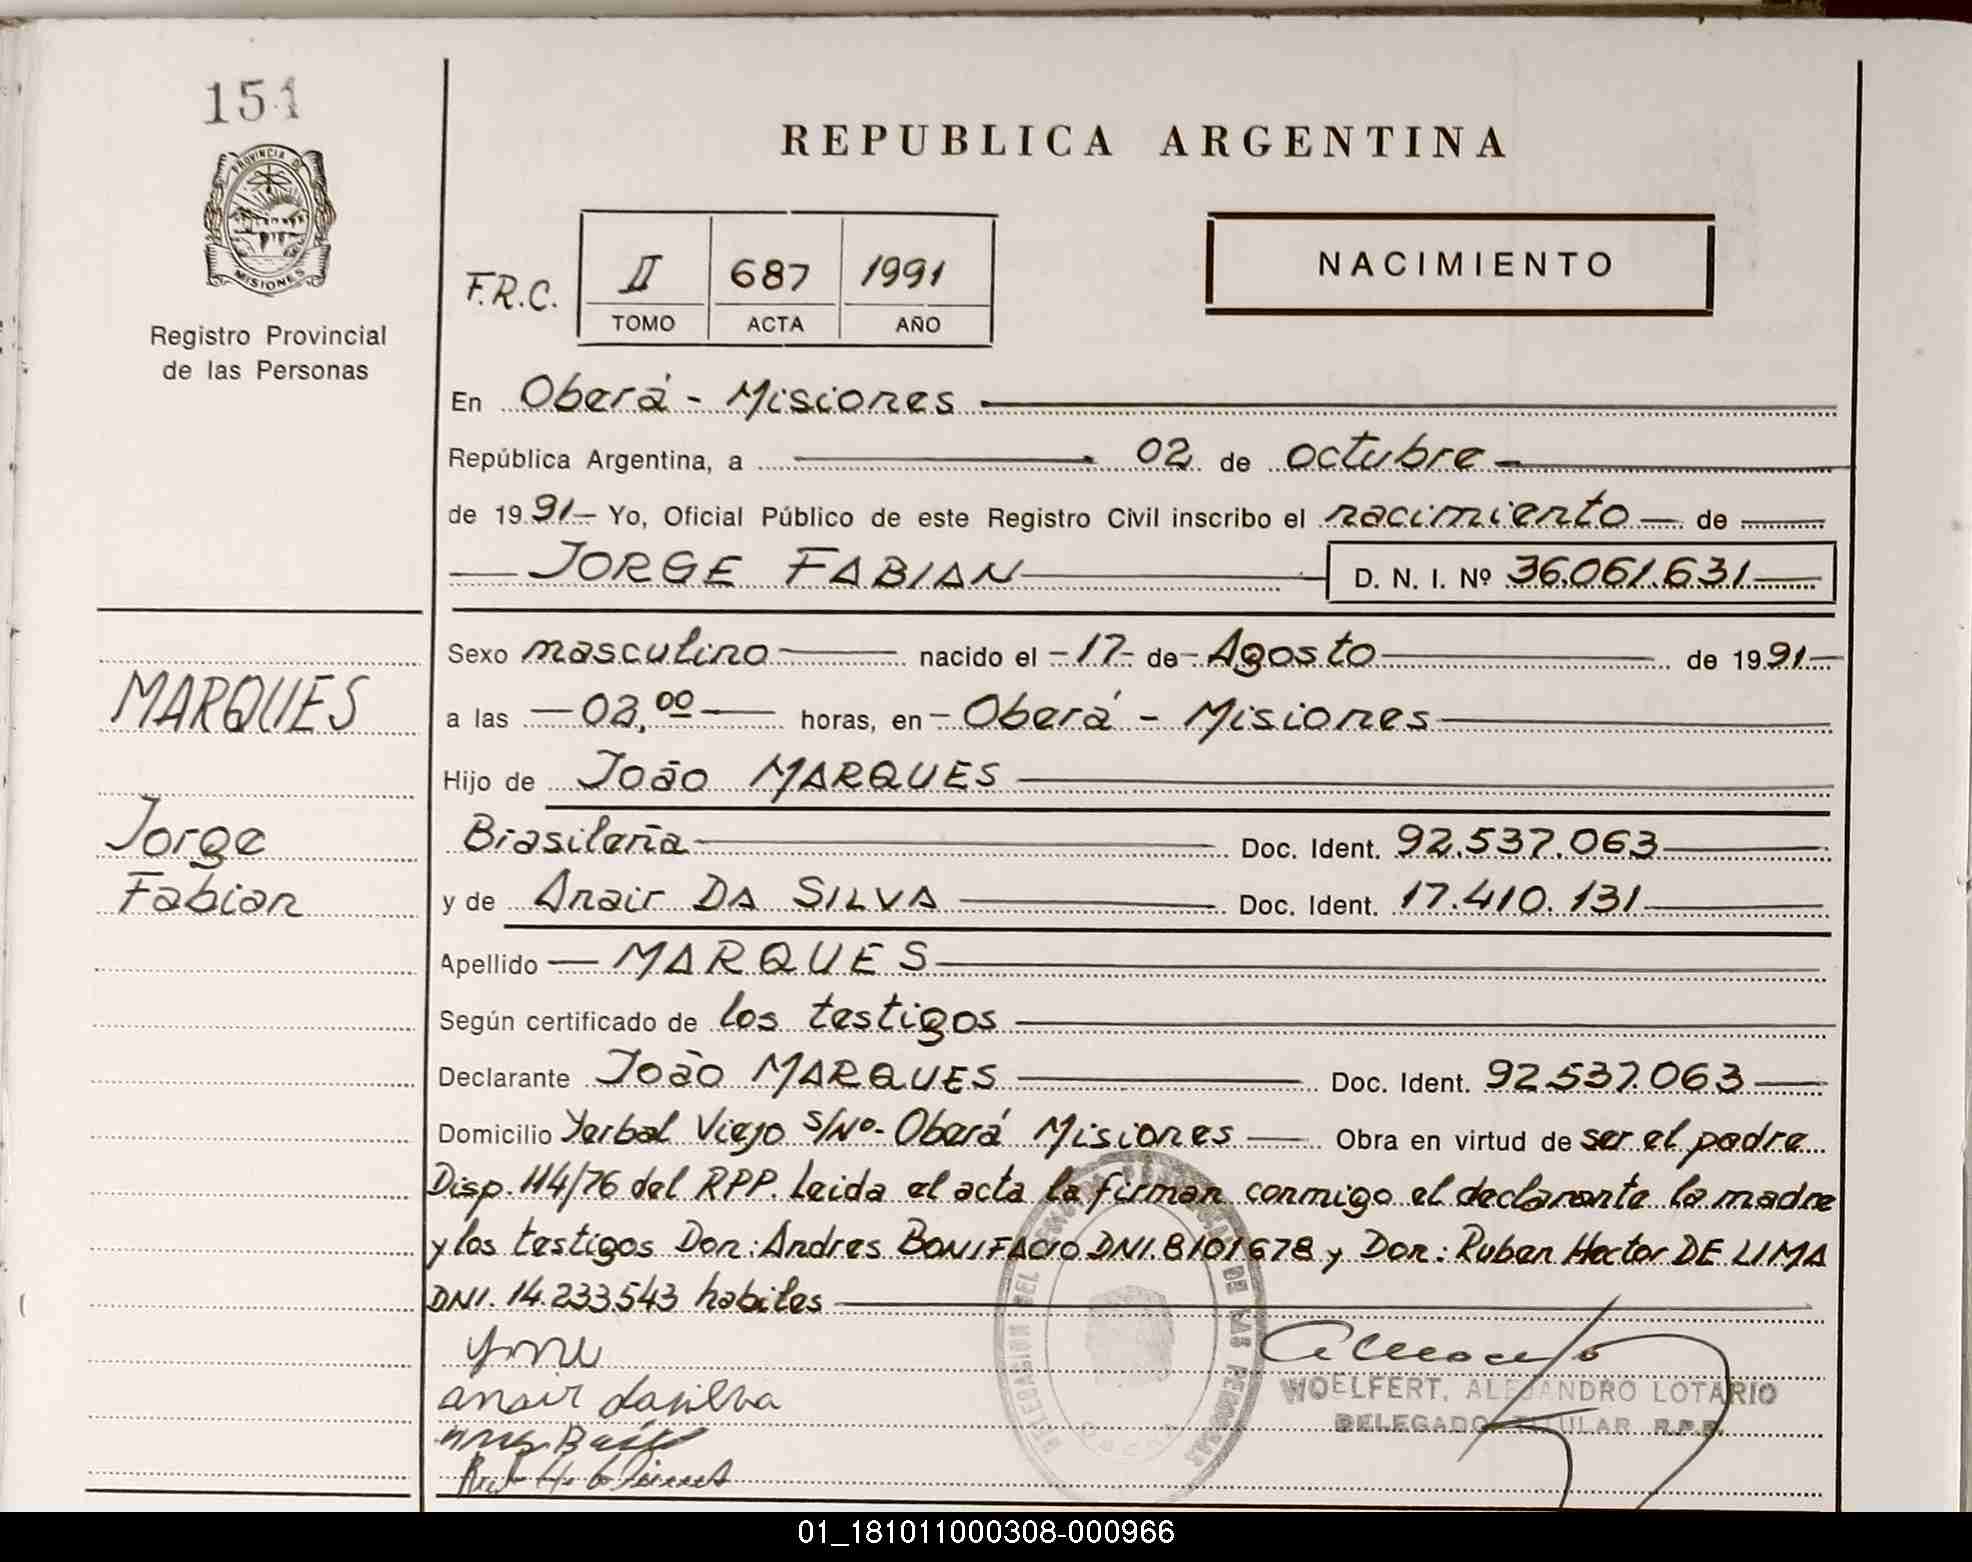 151
PROVINCIA DE
MISIONES
Registro Provincial
de las Personas
REPUBLICA ARGENTINA
NACIMIENTO
F.R.C. II 687 1991
TOMO ACTA AÑO
En Oberá - Misiones
República Argentina, a 02 de octubre
de 1991 Yo, Oficial Público de este Registro Civil inscribo el nacimiento de
JORGE FABIAN D. N. I. Nº 36.061.631
MARQUES
Jorge
Fabian
Sexo masculino nacido el 17 de Agosto de 1991
a las 02,00 horas, en Oberá - Misiones
Hijo de João MARQUES
Brasileña Doc. Ident. 92.537.063
y de Anair DA SILVA Doc. Ident. 17.410.131
Apellido MARQUES
Según certificado de los testigos
Declarante João MARQUES Doc. Ident. 92.537.063
Domicilio Yerbal Viejo S/Nº - Oberá Misiones Obra en virtud de ser el padre
Disp. 114/76 del RPP. Leida el acta la firman conmigo el declarante la madre
y los testigos Don: Andres BONIFACIO DNI. 8101678 y Don: Ruben Hector DE LIMA
DNI. 14.233543 habiles
anair dasilva
DELEGACION DEL DE LAS PERSONAS
WOELFERT, ALEJANDRO LOTARIO
DELEGADO TITULAR R.P.P.
01_181011000308-000966